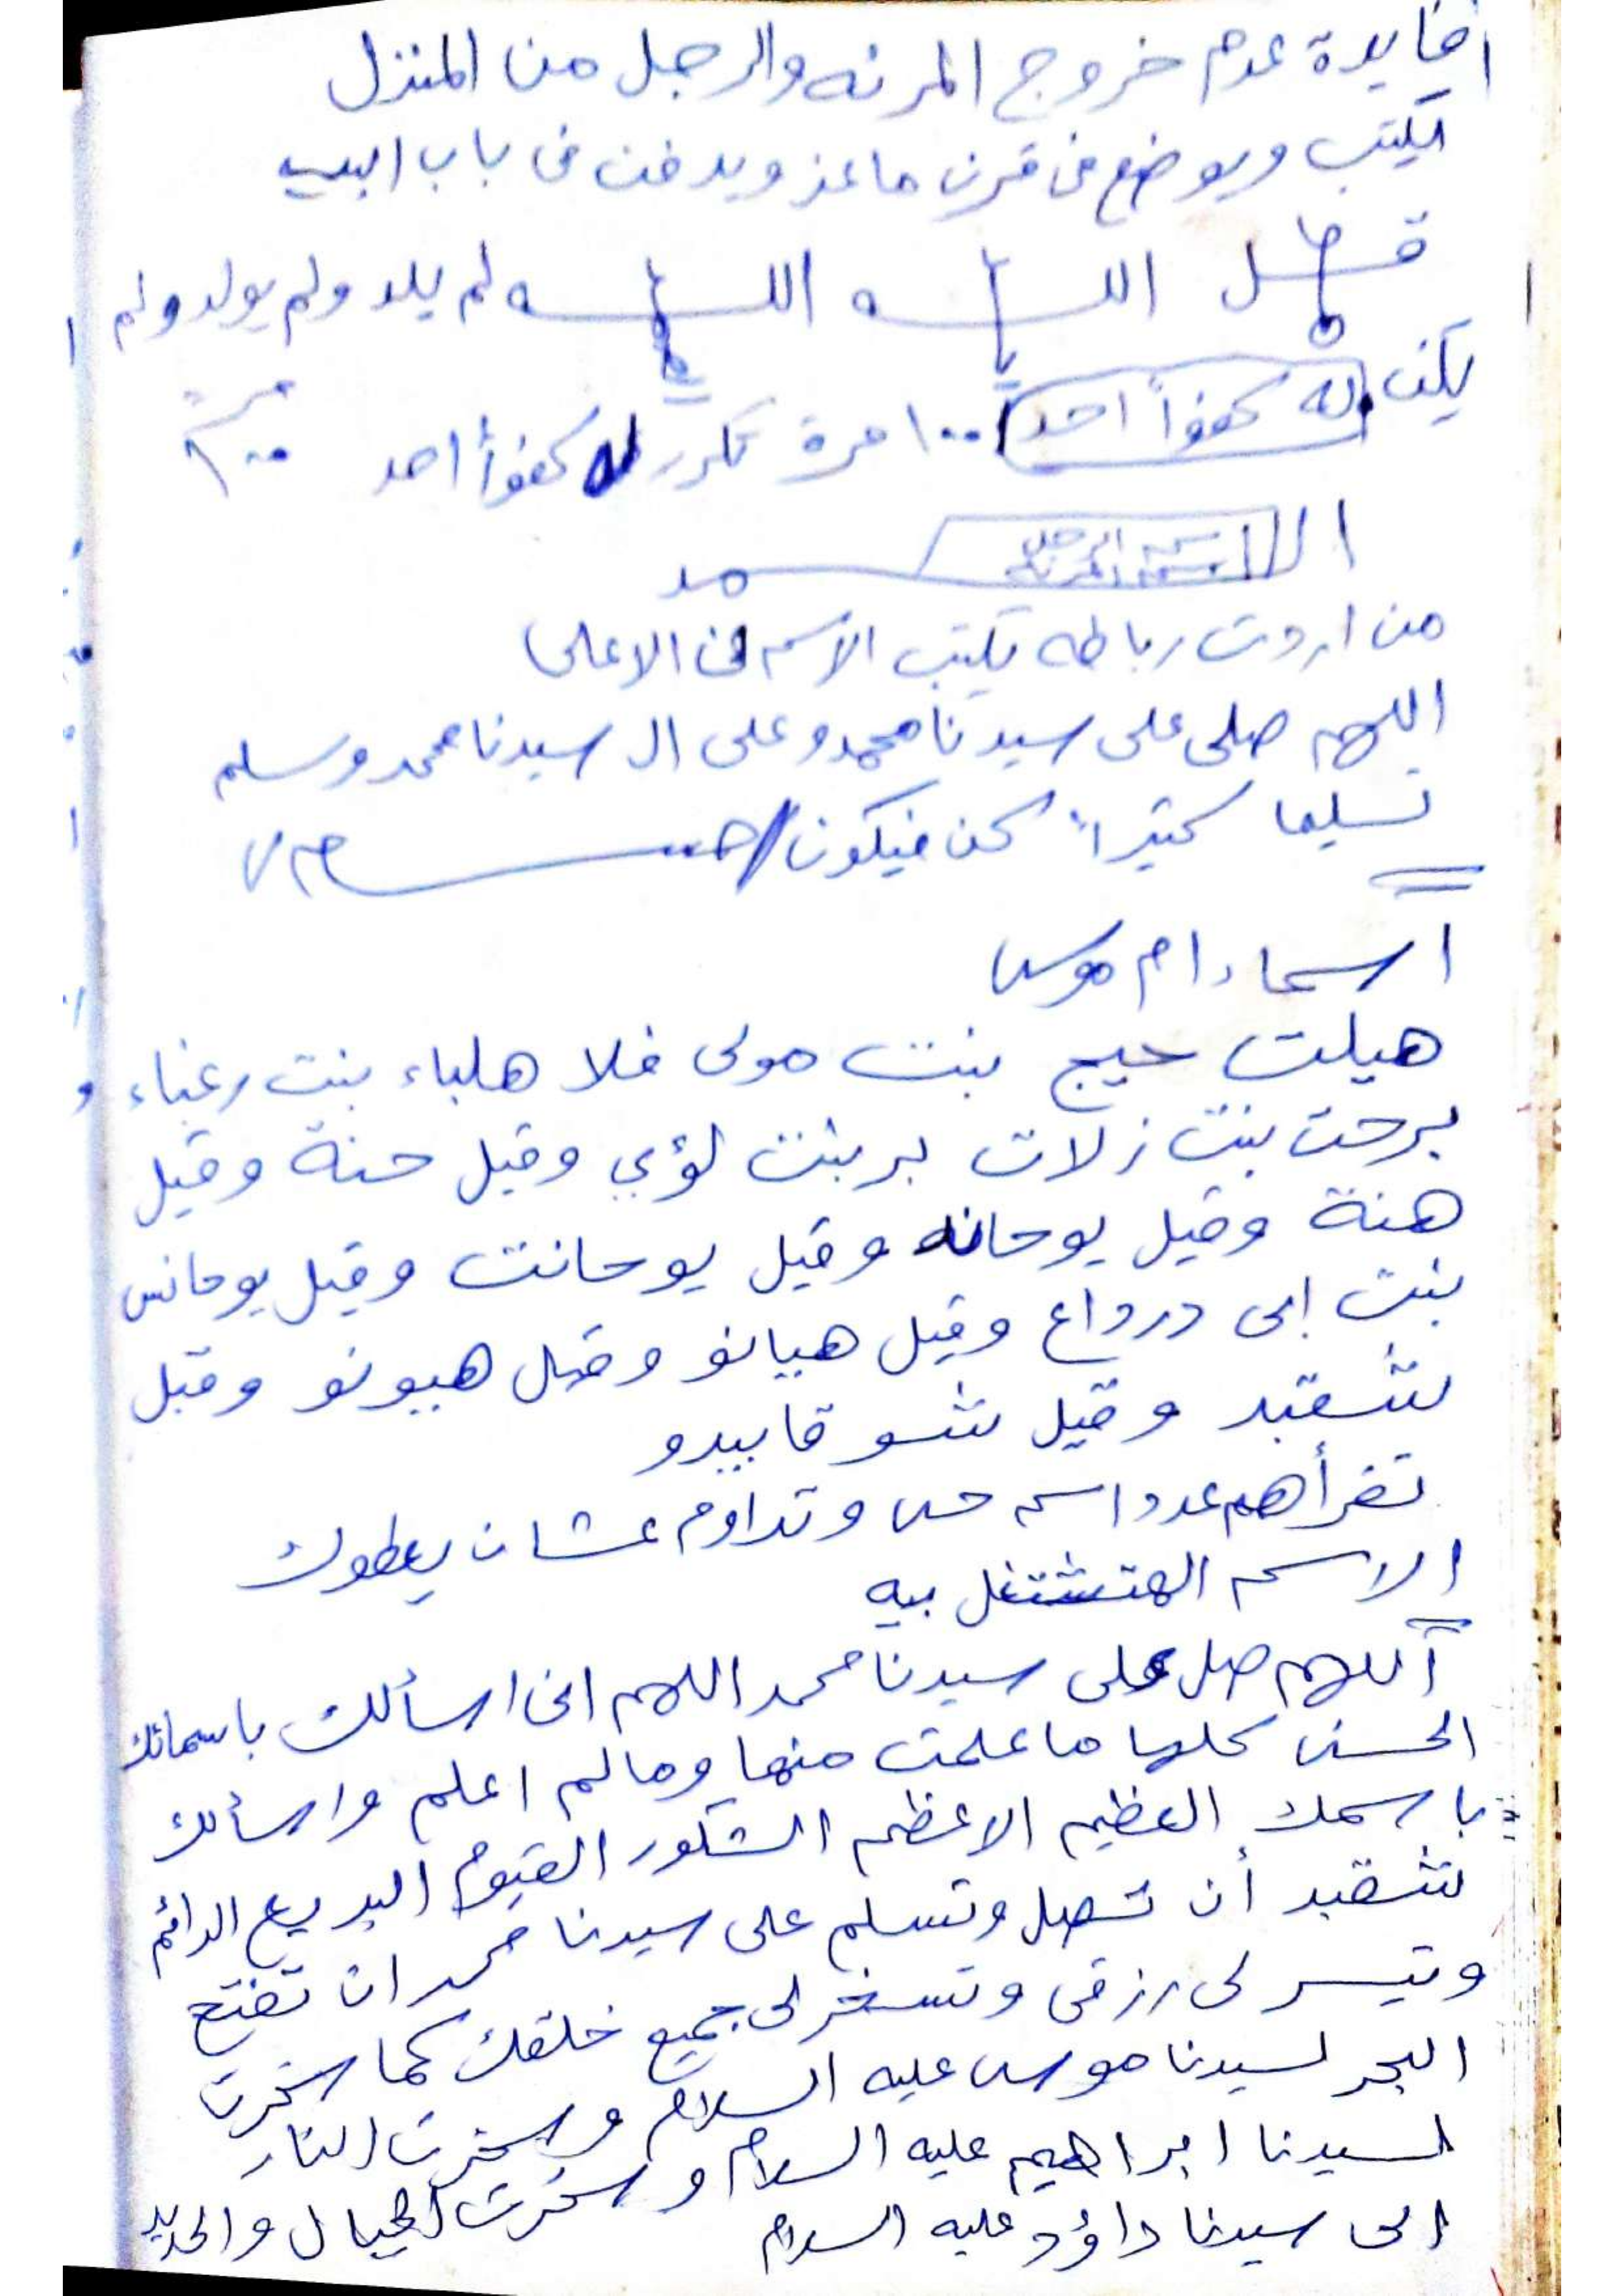 افايدة عدم خروج المرئه والرجل من المنزل
تكتب ويوضع في قرن ماعز ويدفن في باب البيت
قل الله الله لم يلد ولم يولد ولم
يكن له كفواً احد ١٠٠ مرة تكرر له كفواً احد ١٠٠ مرة
من اردت رباطه تكتب الاسم في الاعلى
اللهم صلى على سيدنا محمد وعلى ال سيدنا محمد وسلم
تسليما كثيراً كن فيكون
اسماء ام موسى
هيلت حيج بنت مولى فلا هلباء بنت رغباء
برحت بنت زلات بر بنت لؤي وقيل حنة وقيل
هنة وقيل يوحانه وقيل يوحانت وقيل يوحانس
بنت ابى درداع وقيل هيانو وقيل هيونو وقيل
بشقبد وقيل شو قابيدو
تقرأهم عدد اسم حى وتداوم عشان يعطوك
الاسم الهتشتغل بيه
اللهم صل على سيدنا محمد اللهم انى اسألك باسمائك
الحسنى كلها ما علمت منها ومالم اعلم واسألك
باسمك العظيم الاعظم الشكور القيوم البديع الدائم
بشقبد أن تصل وتسلم على سيدنا محمد ان تفتح
وتيسر لى رزقى وتسخر لى جميع خلقك كما سخرت
البحر لسيدنا موسى عليه السلام وسخرت النار
لسيدنا ابراهيم عليه السلام وسخرت الجبال والحديد
الى سيدنا داؤد عليه السلام